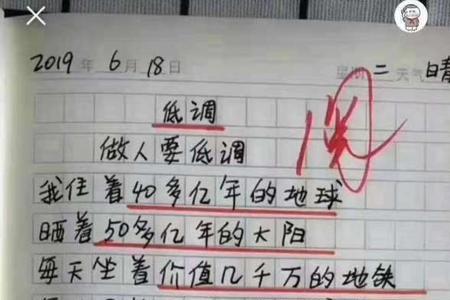 2019年6月18日 星期二 天气晴
低调
阅
做人要低调
我住着40多亿年的地球
晒着50多亿年的太阳
每天坐着价值几千万的地铁